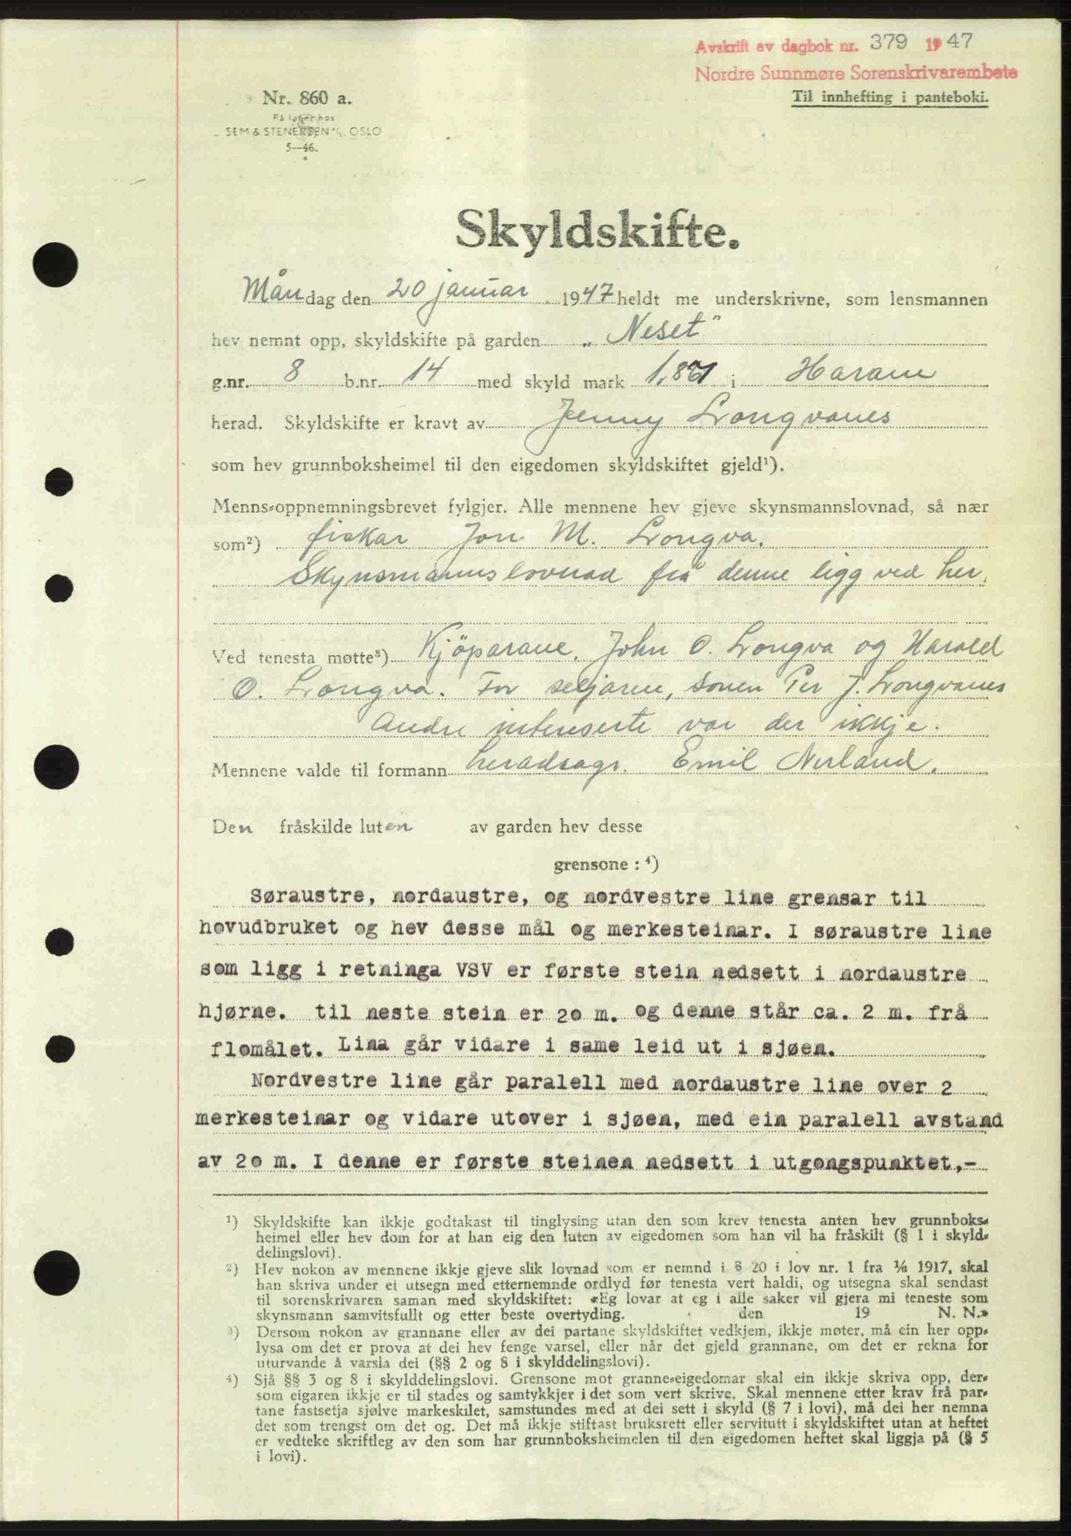 Avskrift av dagbok nr. 379 1947
Nordre Sunnmøre Sorenskrivarembete
Til innhefting i panteboki.
Nr. 860 a.
På lager hos
SEM & STENERSEN A/S, OSLO
5—46.
Skyldskifte.
Måndag den 20 januar 1947 heldt me underskrivne, som lensmannen
hev nemnt opp, skyldskifte på garden „Neset"
g.nr. 8 b.nr. 14 med skyld mark 1,871 i Haram
herad. Skyldskifte er kravt av Jenny Longvanes
som hev grunnboksheimel til den eigedomen skyldskiftet gjeld¹).
Menns-oppnemningsbrevet fylgjer. Alle mennene hev gjeve skynsmannslovnad, så nær
som²) fiskar Jon M. Longva.
Skynsmannslovnad frå denne ligg ved her.
Ved tenesta møtte³) Kjöparane, John O. Longva og Harald
O. Longva. For seljaren, sonen Per J. Longvanes
Andre interesserte var der ikkje.
Mennene valde til formann heradsagr. Emil Nerland.
Den fråskilde luten av garden hev desse
grensone : ⁴)
Søraustre, nordaustre, og nordvestre line grensar til
hovudbruket og hev desse mål og merkesteinar. I søraustre line
som ligg i retninga VSV er første stein nedsett i nordaustre
hjørne. til neste stein er 20 m. og denne står ca. 2 m. frå
flomålet. Lina går vidare i same leid ut i sjøen.
Nordvestre line går paralell med nordaustre line over 2
merkesteinar og vidare utover i sjøen, med ein paralell avstand
av 20 m. I denne er første steinen nedsett i utgongspunktet,-
¹) Skyldskifte kan ikkje godtakast til tinglysing utan den som krev tenesta anten hev grunnboks-
heimel eller hev dom for at han eig den luten av eigedomen som han vil ha fråskilt (§ 1 i skyld-
delingslovi).
²) Hev nokon av mennene ikkje gjeve slik lovnad som er nemnd i § 20 i lov nr. 1 fra ¹/₆ 1917, skal
han skriva under ei utsegn med etternemnde ordlyd før tenesta vert haldi, og utsegna skal sendast
til sorenskrivaren saman med skyldskiftet: «Eg lovar at eg i alle saker vil gjera mi teneste som
skynsmann samvitsfullt og etter beste overtyding. den 19 N. N.»
³) Dersom nokon av grannane eller av dei partane skyldskiftet vedkjem, ikkje møter, må ein her opp-
lysa om det er prova at dei hev fenge varsel, eller når det gjeld grannane, om det er rekna for
uturvande å varsla dei (§§ 2 og 8 i skylddelingslovi).
⁴) Sjå §§ 3 og 8 i skylddelingslovi. Grensone mot granne-eigedomar skal ein ikkje skriva opp, der-
som eigaren ikkje er til stades og samtykkjer i det som vert skrive. Skal mennene etter krav frå par-
tane fastsetja sjølve markeskilet, samstundes med at dei sett i skyld (§ 7 i lovi), må dei her nemna
det som trengst om det og. Det må ikkje stiftast bruksrett eller servitutt i skyldskiftet utan at heftet
er vedteke skriftleg av den som har grunnboksheimelen til den eigedomen heftet skal liggja på (§ 5
i lovi).